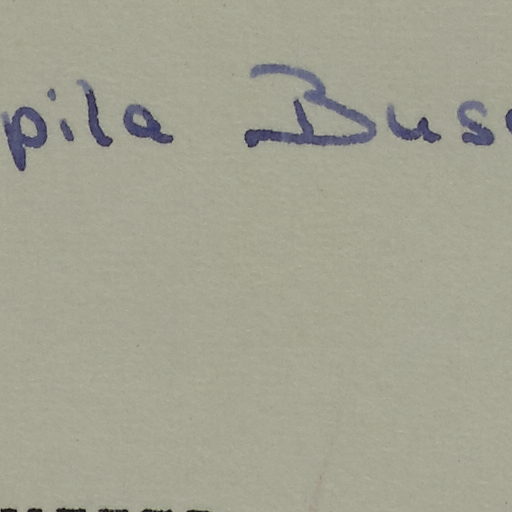 pila Bus